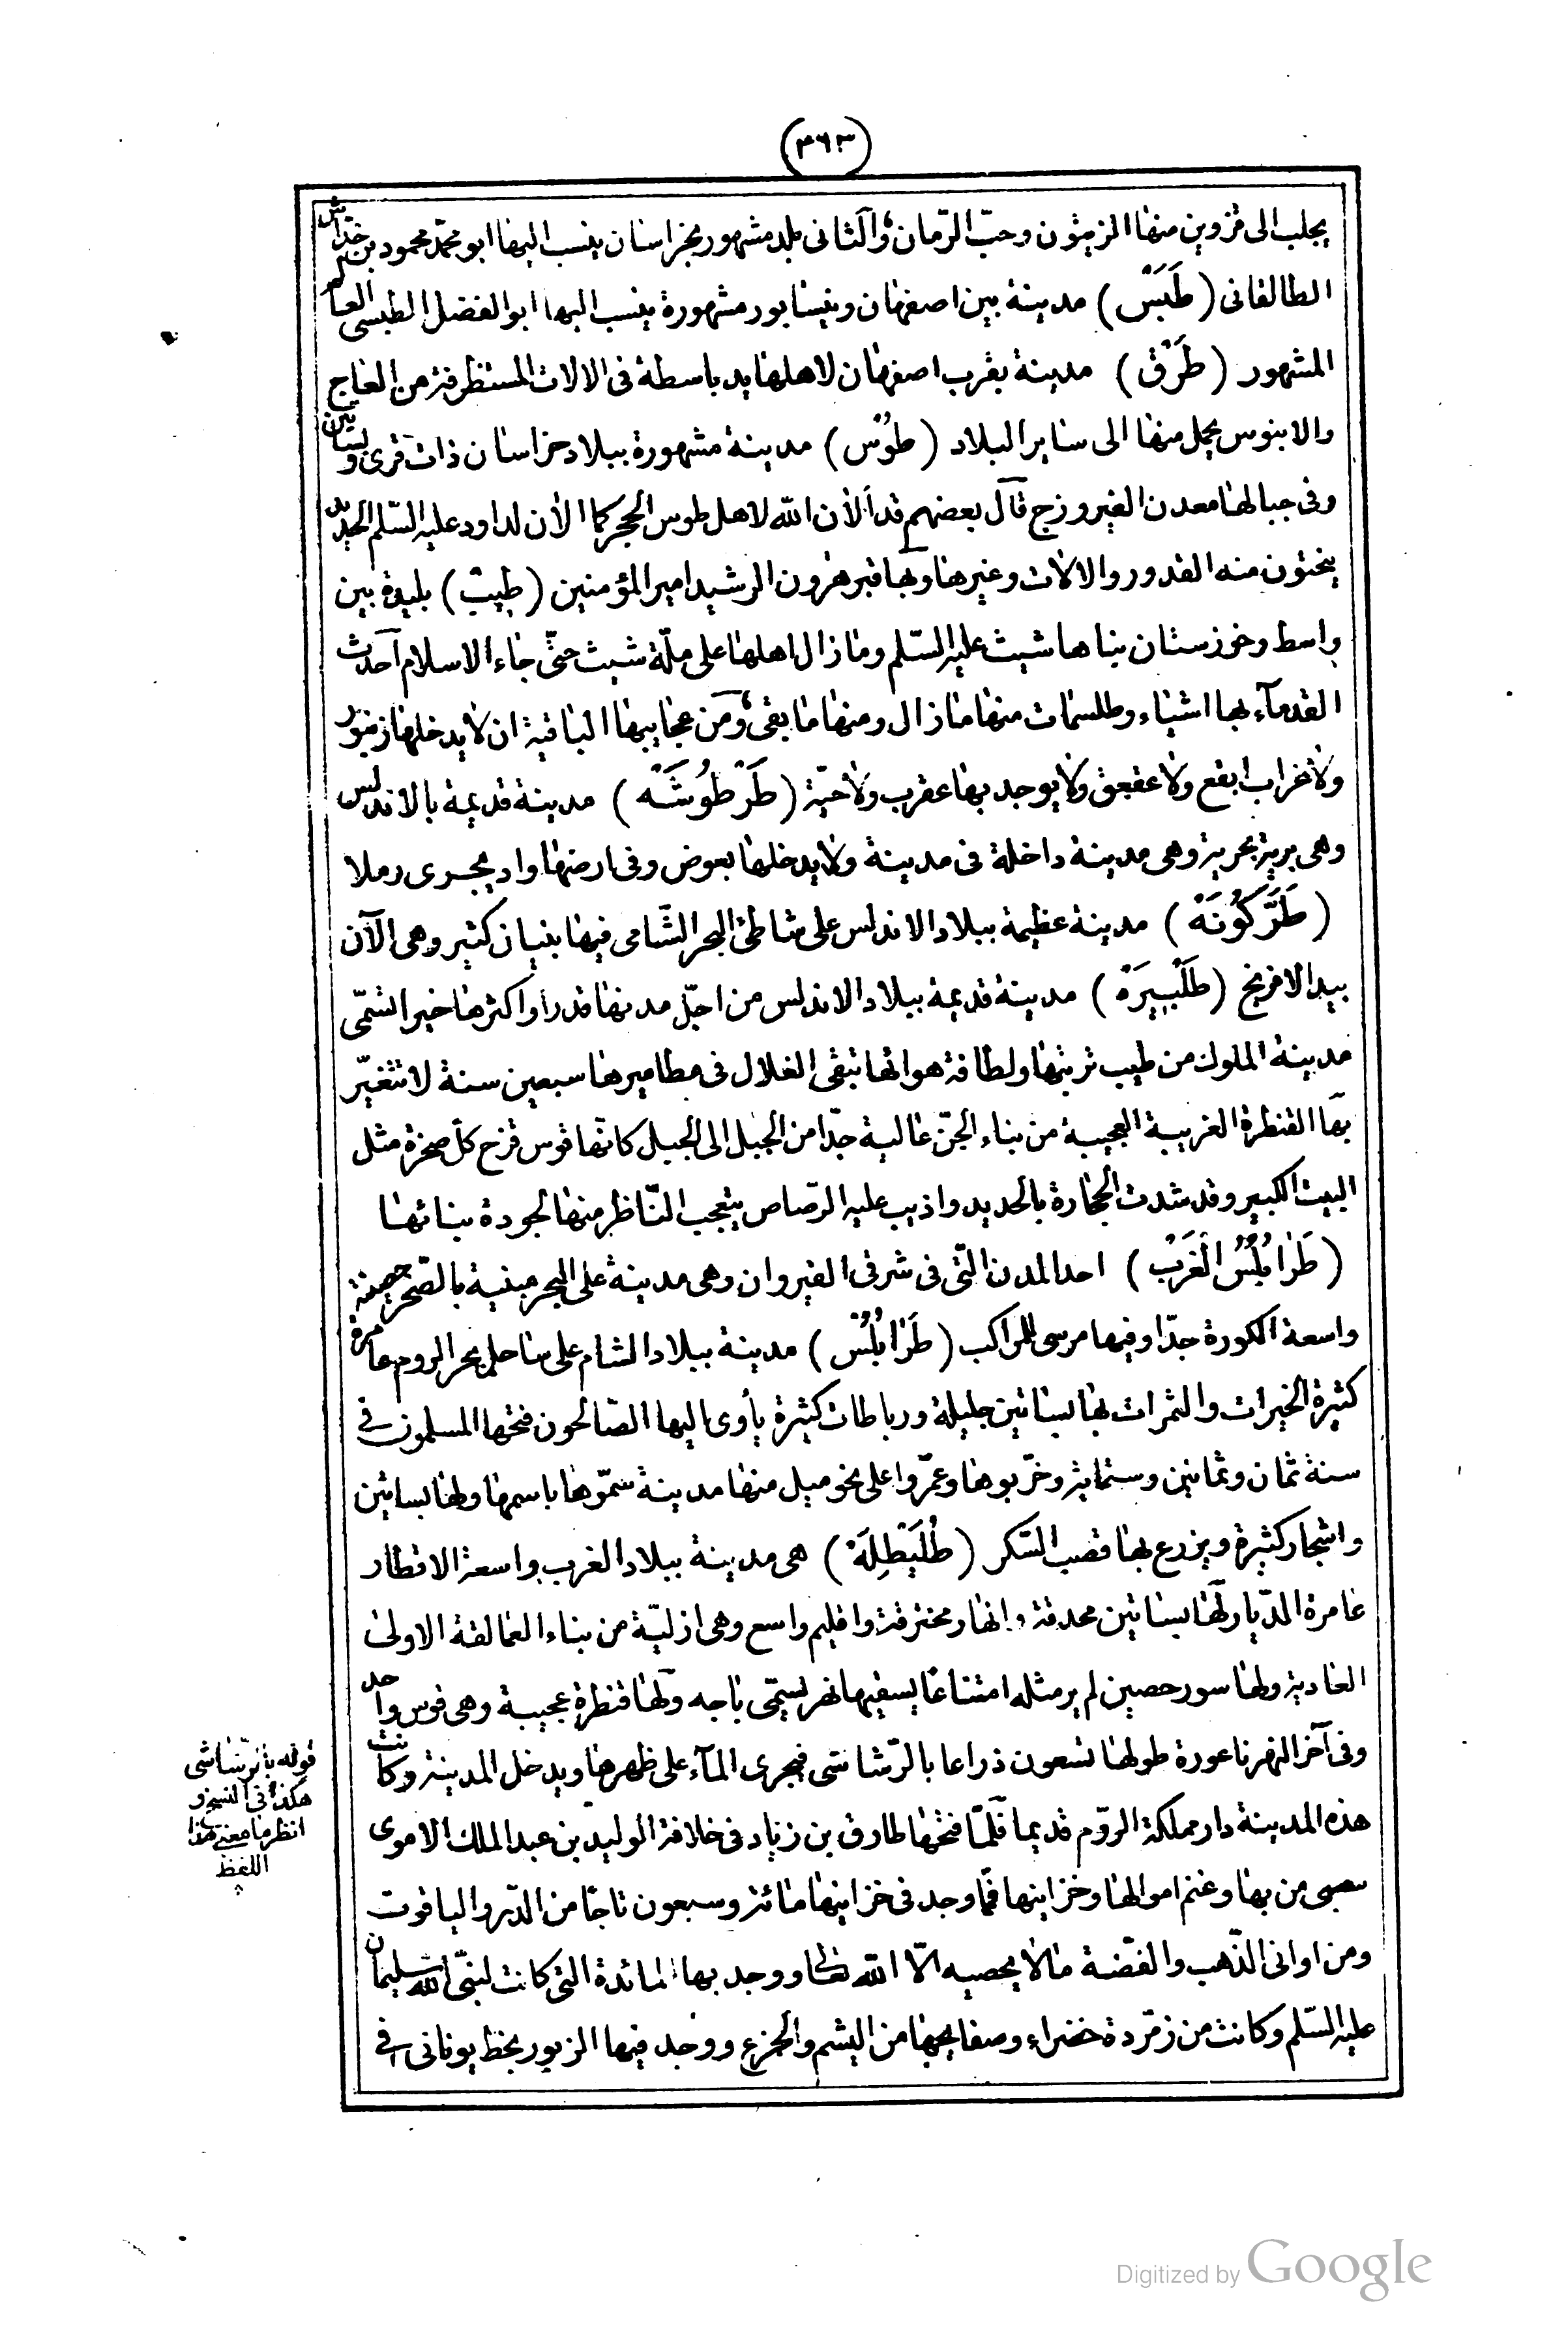 (٤٦٣)
يجلب الى قزوين منها الزيتون وحبّ الرّمان والثانى بلد مشهور بخراسان ينسب اليها ابو محمّد محمود بن خداش
الطالقانى (طَبَسْ) مدينة بين اصفهان ونيسابور مشهورة ينسب اليها ابو الفضل الطبسى العالم
المشهور (طَرْق) مدينة بقرب اصفهان لاهلها يد باسطة فى الالات المستظرفة من العاج
والابنوس يحمل منها الى ساير البلاد (طُوْس) مدينة مشهورة ببلاد خراسان ذات قرى وبساتين
وفى جبالها معدن الفيروزج قال بعضهم قد ألان الله لاهل طوس الحجر كما الان لداود عليه السّلم الحديد
ينحتون منه القدور والالات وغيرها وبها قبر هرون الرشيد امير المؤمنين (طِيبْ) بليدة بين
واسط وخوزستان بناها شيث عليه السّلم وما زال اهلها على ملّة شيث حتّى جاء الاسلام أحدث
القدمآء بها اشياء وطلسمات منها ما زال ومنها ما بقى ومن عجايبها الباقية ان لا يدخلها زنبور
ولا غراب ابقع ولا عقعق ولا يوجد بها عقرب ولا حيّة (طَرْطُوشَهْ) مدينة قديمة بالاندلس
وهى برية بحرية وهى مدينة داخلة فى مدينة ولا يدخلها بعوض وفى ارضها واد يجرى رملا
(طَرَّكُونَهْ) مدينة عظيمة ببلاد الاندلس على شاطئ البحر الشّامى فيها بنيان كثير وهى الآن
بيد الافرنج (طَلَبِيرَهْ) مدينة قديمة ببلاد الاندلس من اجلّ مدنها قدرا واكثرها خيرا تسمّى
مدينة الملوك من طيب تربتها ولطافة هوائها تبقى الغلال فى مطاميرها سبعين سنة لا تتغيّر
بها القنطرة الغريبة العجيبة من بناء الجنّ عالية جدّا من الجبل الى الجبل كانّها قوس قزح كلّ صخرة مثل
البيت الكبير وقد شدت الحجارة بالحديد واذيب عليه الرّصاص يتعجب النّاظر منها لجودة بنائها
(طَرَابُلُسُ الغَرْبْ) احد المدن التى فى شرقى القيروان وهى مدينة على البحر مبنية بالصّخر حصينة
واسعة الكورة جدّا وفيها مرسى للمراكب (طَرَابُلُسْ) مدينة ببلاد الشام على ساحل بحر الروم عامرة
كثيرة الخيرات والثمرات بها بساتين جليلة ورباطات كثيرة يأوى اليها الصّالحون فتحها المسلمون فى
سنة ثمان وثمانين وستماية وخرّبوها وعمّروا على نحو ميل منها مدينة سمّوها باسمها ولها بساتين
واشجار كثيرة ويزرع بها قصب السّكر (طُلَيْطِلَهْ) هى مدينة ببلاد الغرب واسعة الاقطار
عامرة الدّيار لها بساتين محدقة وانهار مخترقة واقليم واسع وهى ازليّة من بناء العمالقة الاولى
العادية ولها سور حصين لم ير مثله امتناعا يسقيها نهر يسمّى باجه ولها قنطرة عجيبة وهى قوس واحد
وفى آخر النهر ناعورة طولها تسعون ذراعا بالرّشاشى فيجرى المآء على ظهرها ويدخل المدينة وكانت
هذه المدينة دار مملكة الروّم قديما فلمّا فتحها طارق بن زياد فى خلافة الوليد بن عبد الملك الاموى
سبى من بها وغنم اموالها وخزاينها فمّا وجد فى خزاينها مائة وسبعون تاجا من الدّر والياقوت
ومن اوانى الذّهب والفضّة ما لا يحصيه الاّ الله تعالى ووجد بها المائدة التى كانت لنبىّ الله سليمان
عليه السّلم وكانت من زمّردة خضراء وصفايحها من اليشم والجزع ووجد فيها الزبور بخط يونانى فى
قوله بالرّشاشى
هكذا فى النسخ و
انظر ما معنى هذا
اللفظ
Digitized by Google